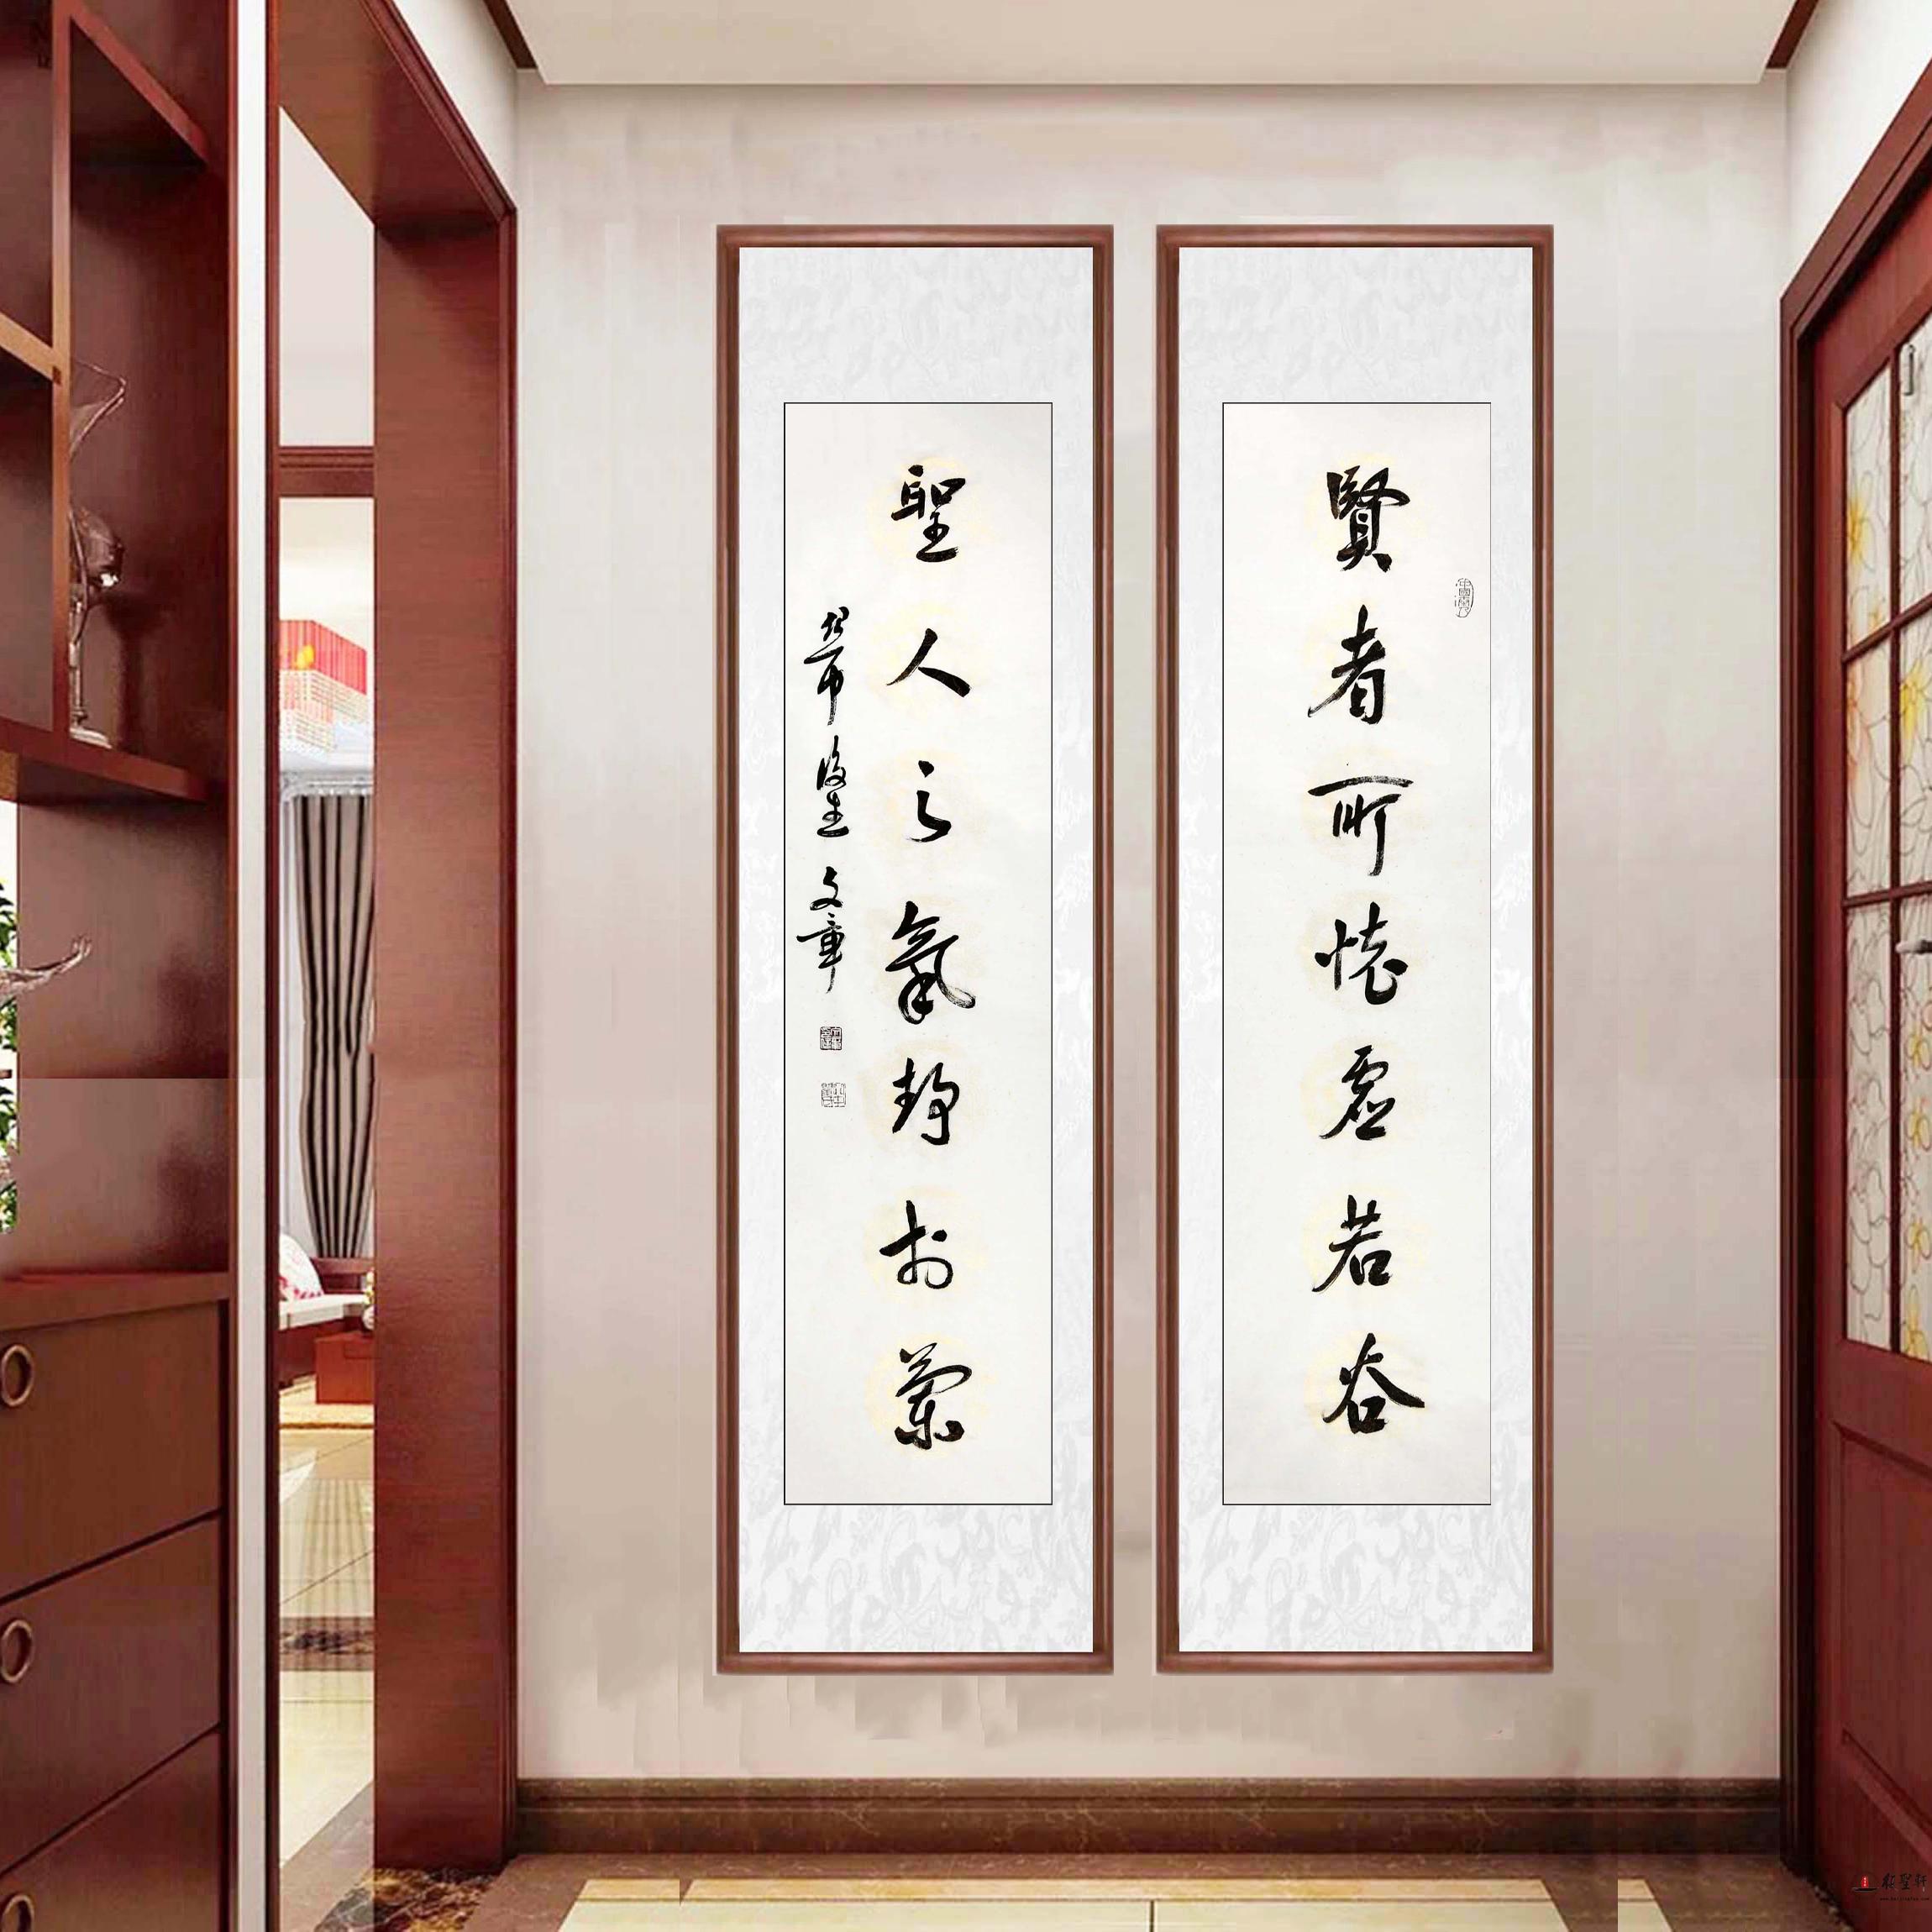 賢者所懷虛若谷
聖人之氣靜於蘭
文章